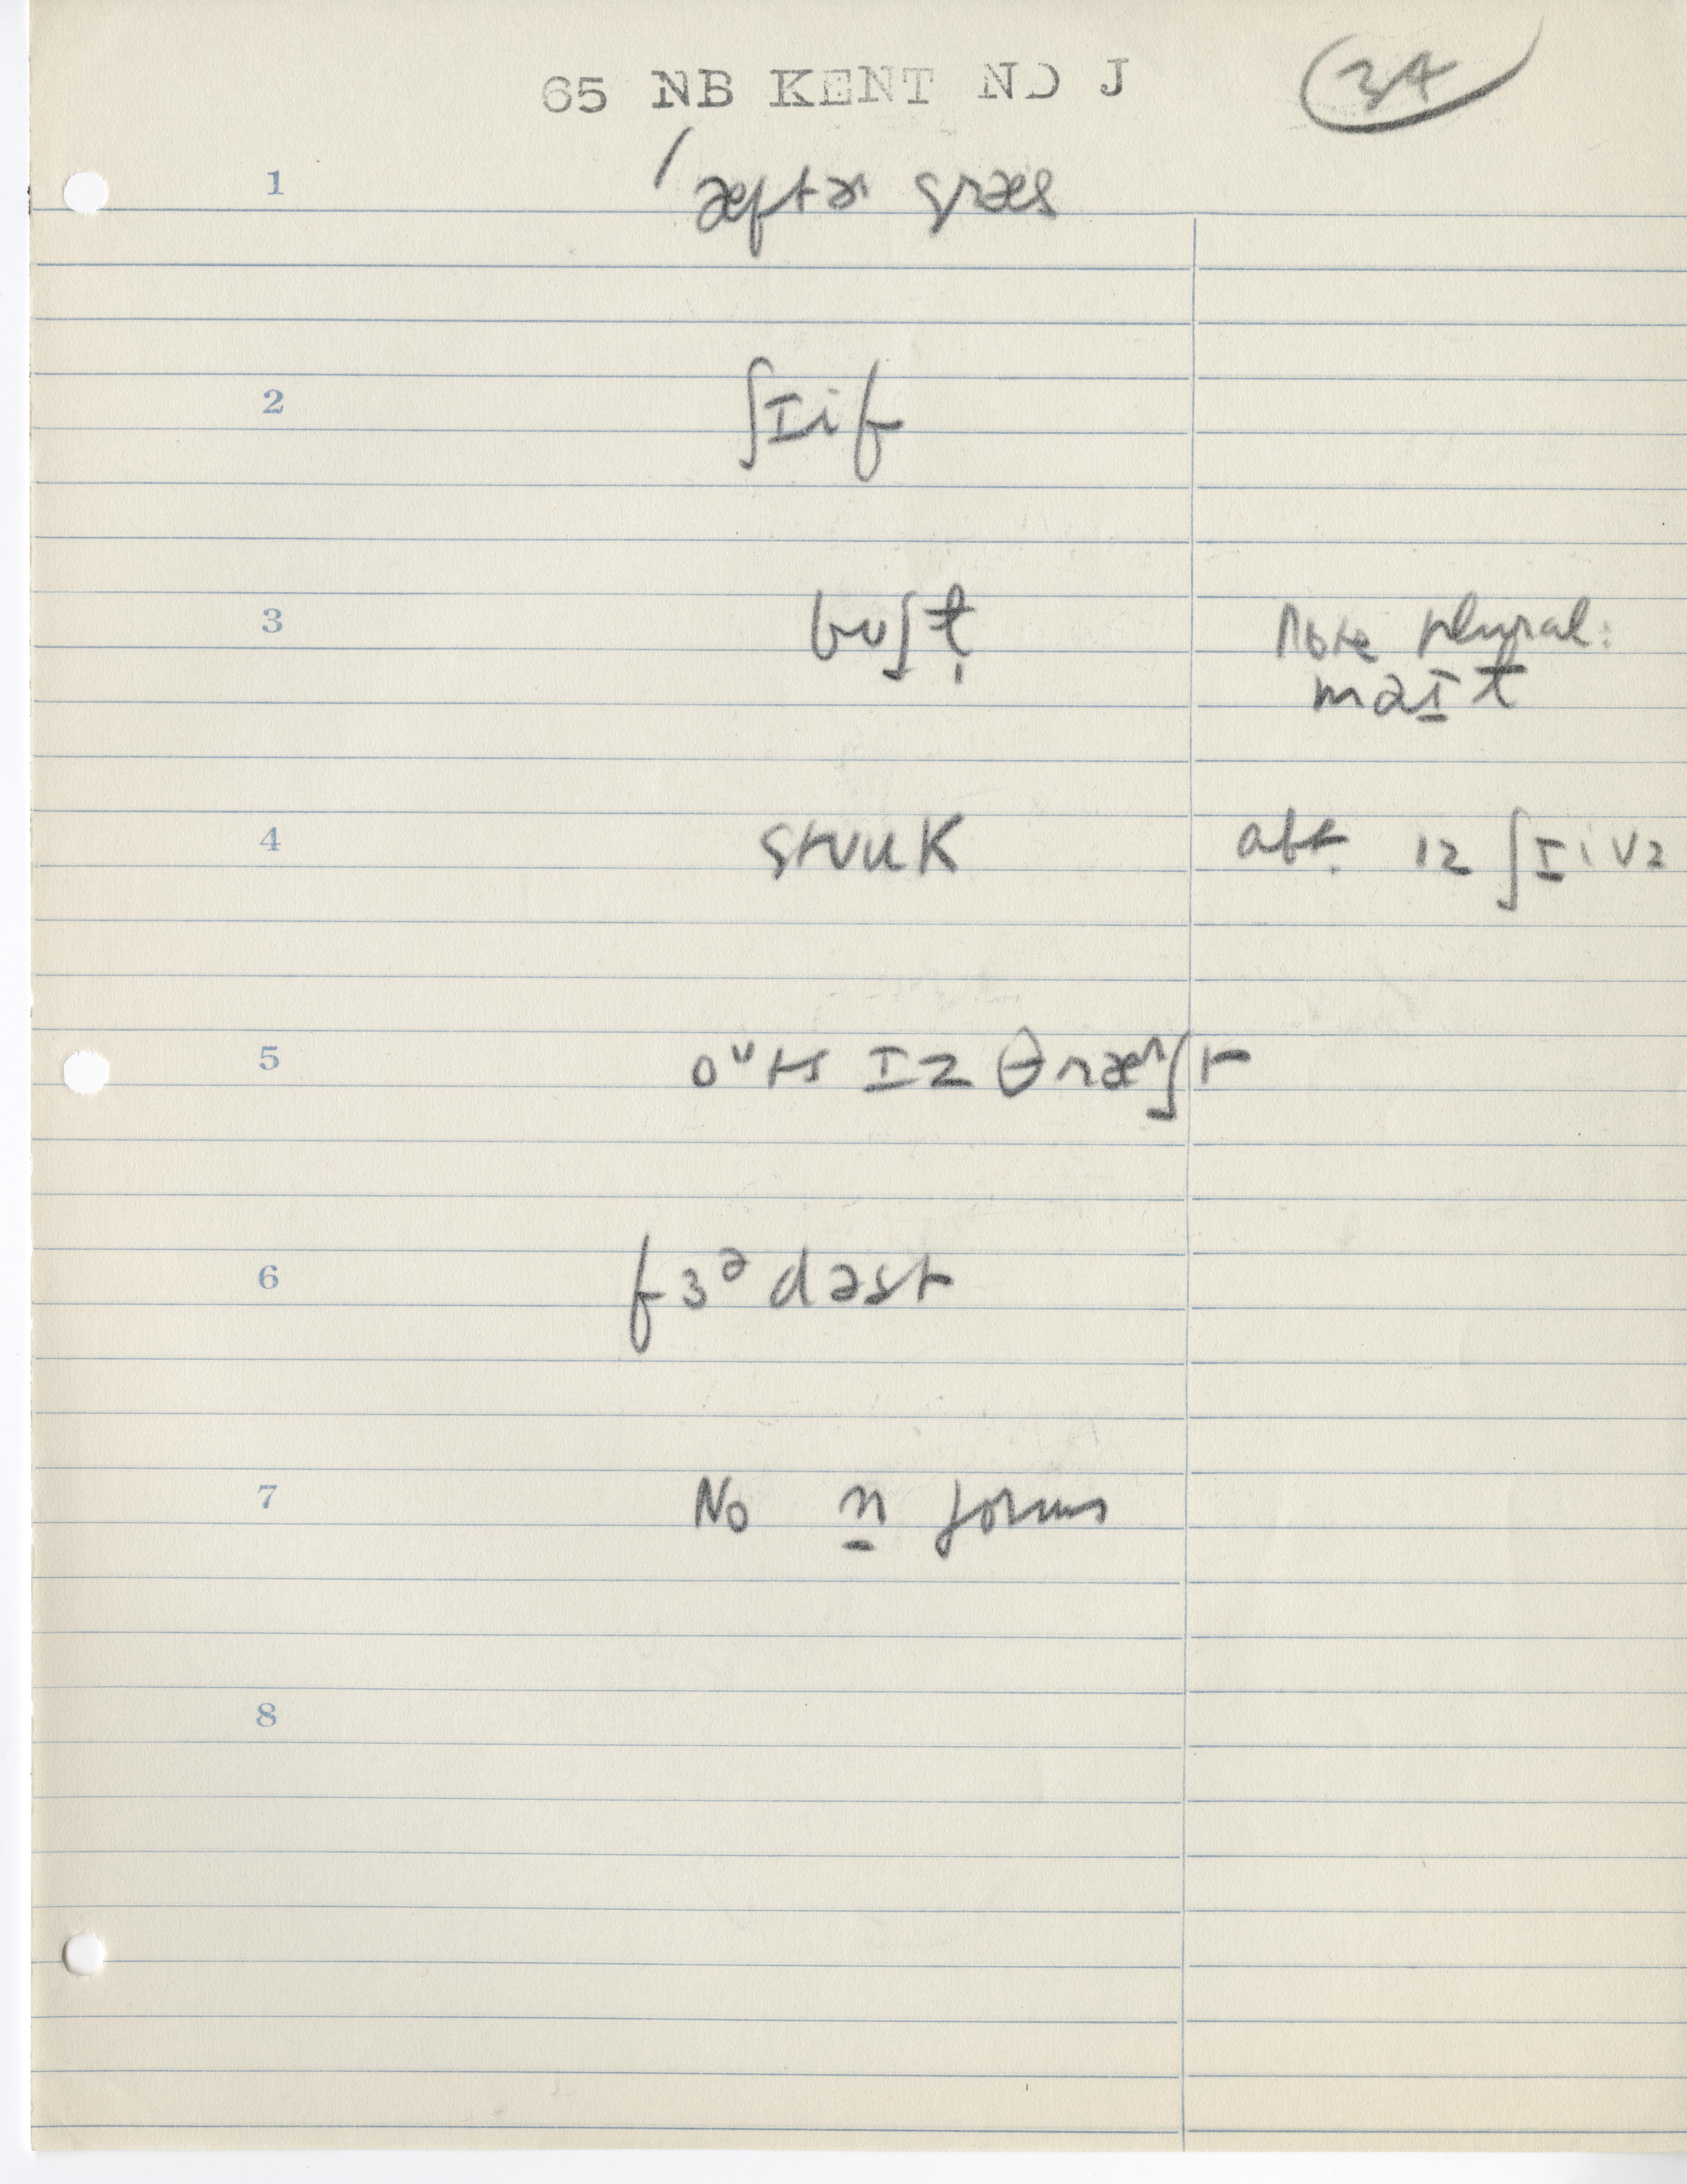 65 NB KENT NO J 34
1 ˈæftɚ græs
2 ʃɪif
3 buʃt̬ Note plural:
məɪt
4 stvuk abt. 12 ʃɪivz
5 oᵘts ɪz θræᶺʃt
6 fɜᵊdəst
7 No n forms
8